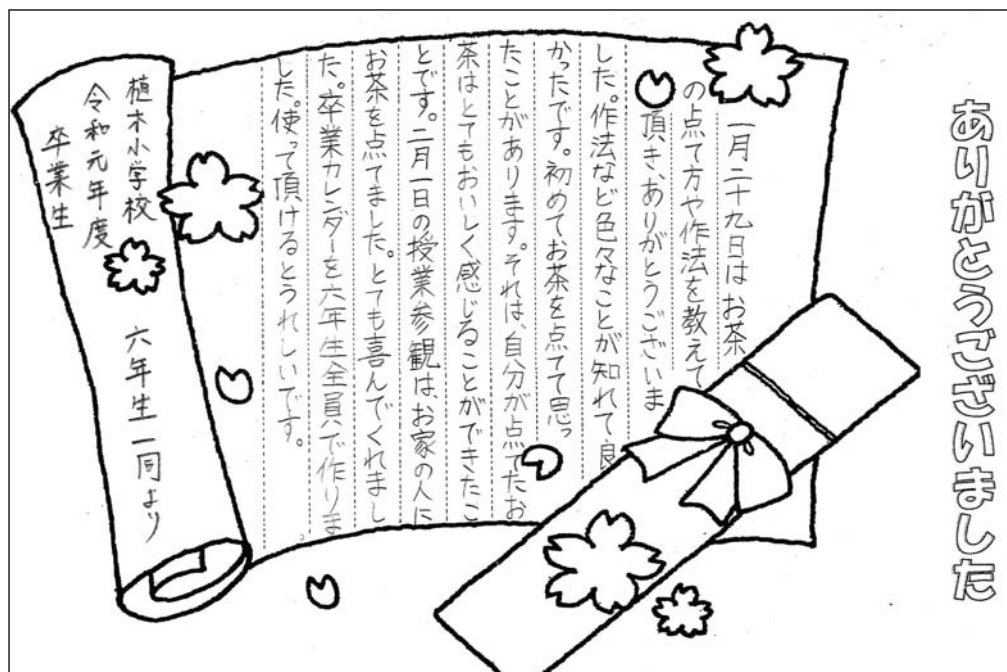 ありがとうございました
一月二十九日はお茶
の点て方や作法を教えて
頂き、ありがとうございま
した。作法など色々なことが知れて良
かったです。初めてお茶を点てて思っ
たことがあります。それは、自分が点てたお
茶はとてもおいしく感じることができたこ
とです。二月一日の授業参観は、お家の人に
お茶を点てました。とても喜んでくれまし
た。卒業カレンダーを六年生全員で作りま
した。使って頂けるとうれしいです。
植木小学校
令和元年度
卒業生
六年生一同より